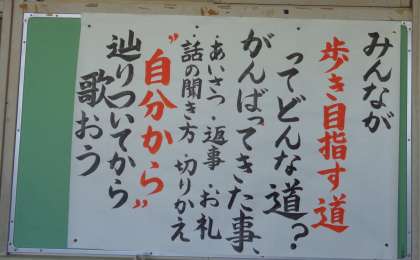 みんなが
歩き目指す道
ってどんな道?
がんばってきた事、
・あいさつ・返事・お礼
・話の聞き方・切りかえ
"自分から"
辿りついてから
歌おう